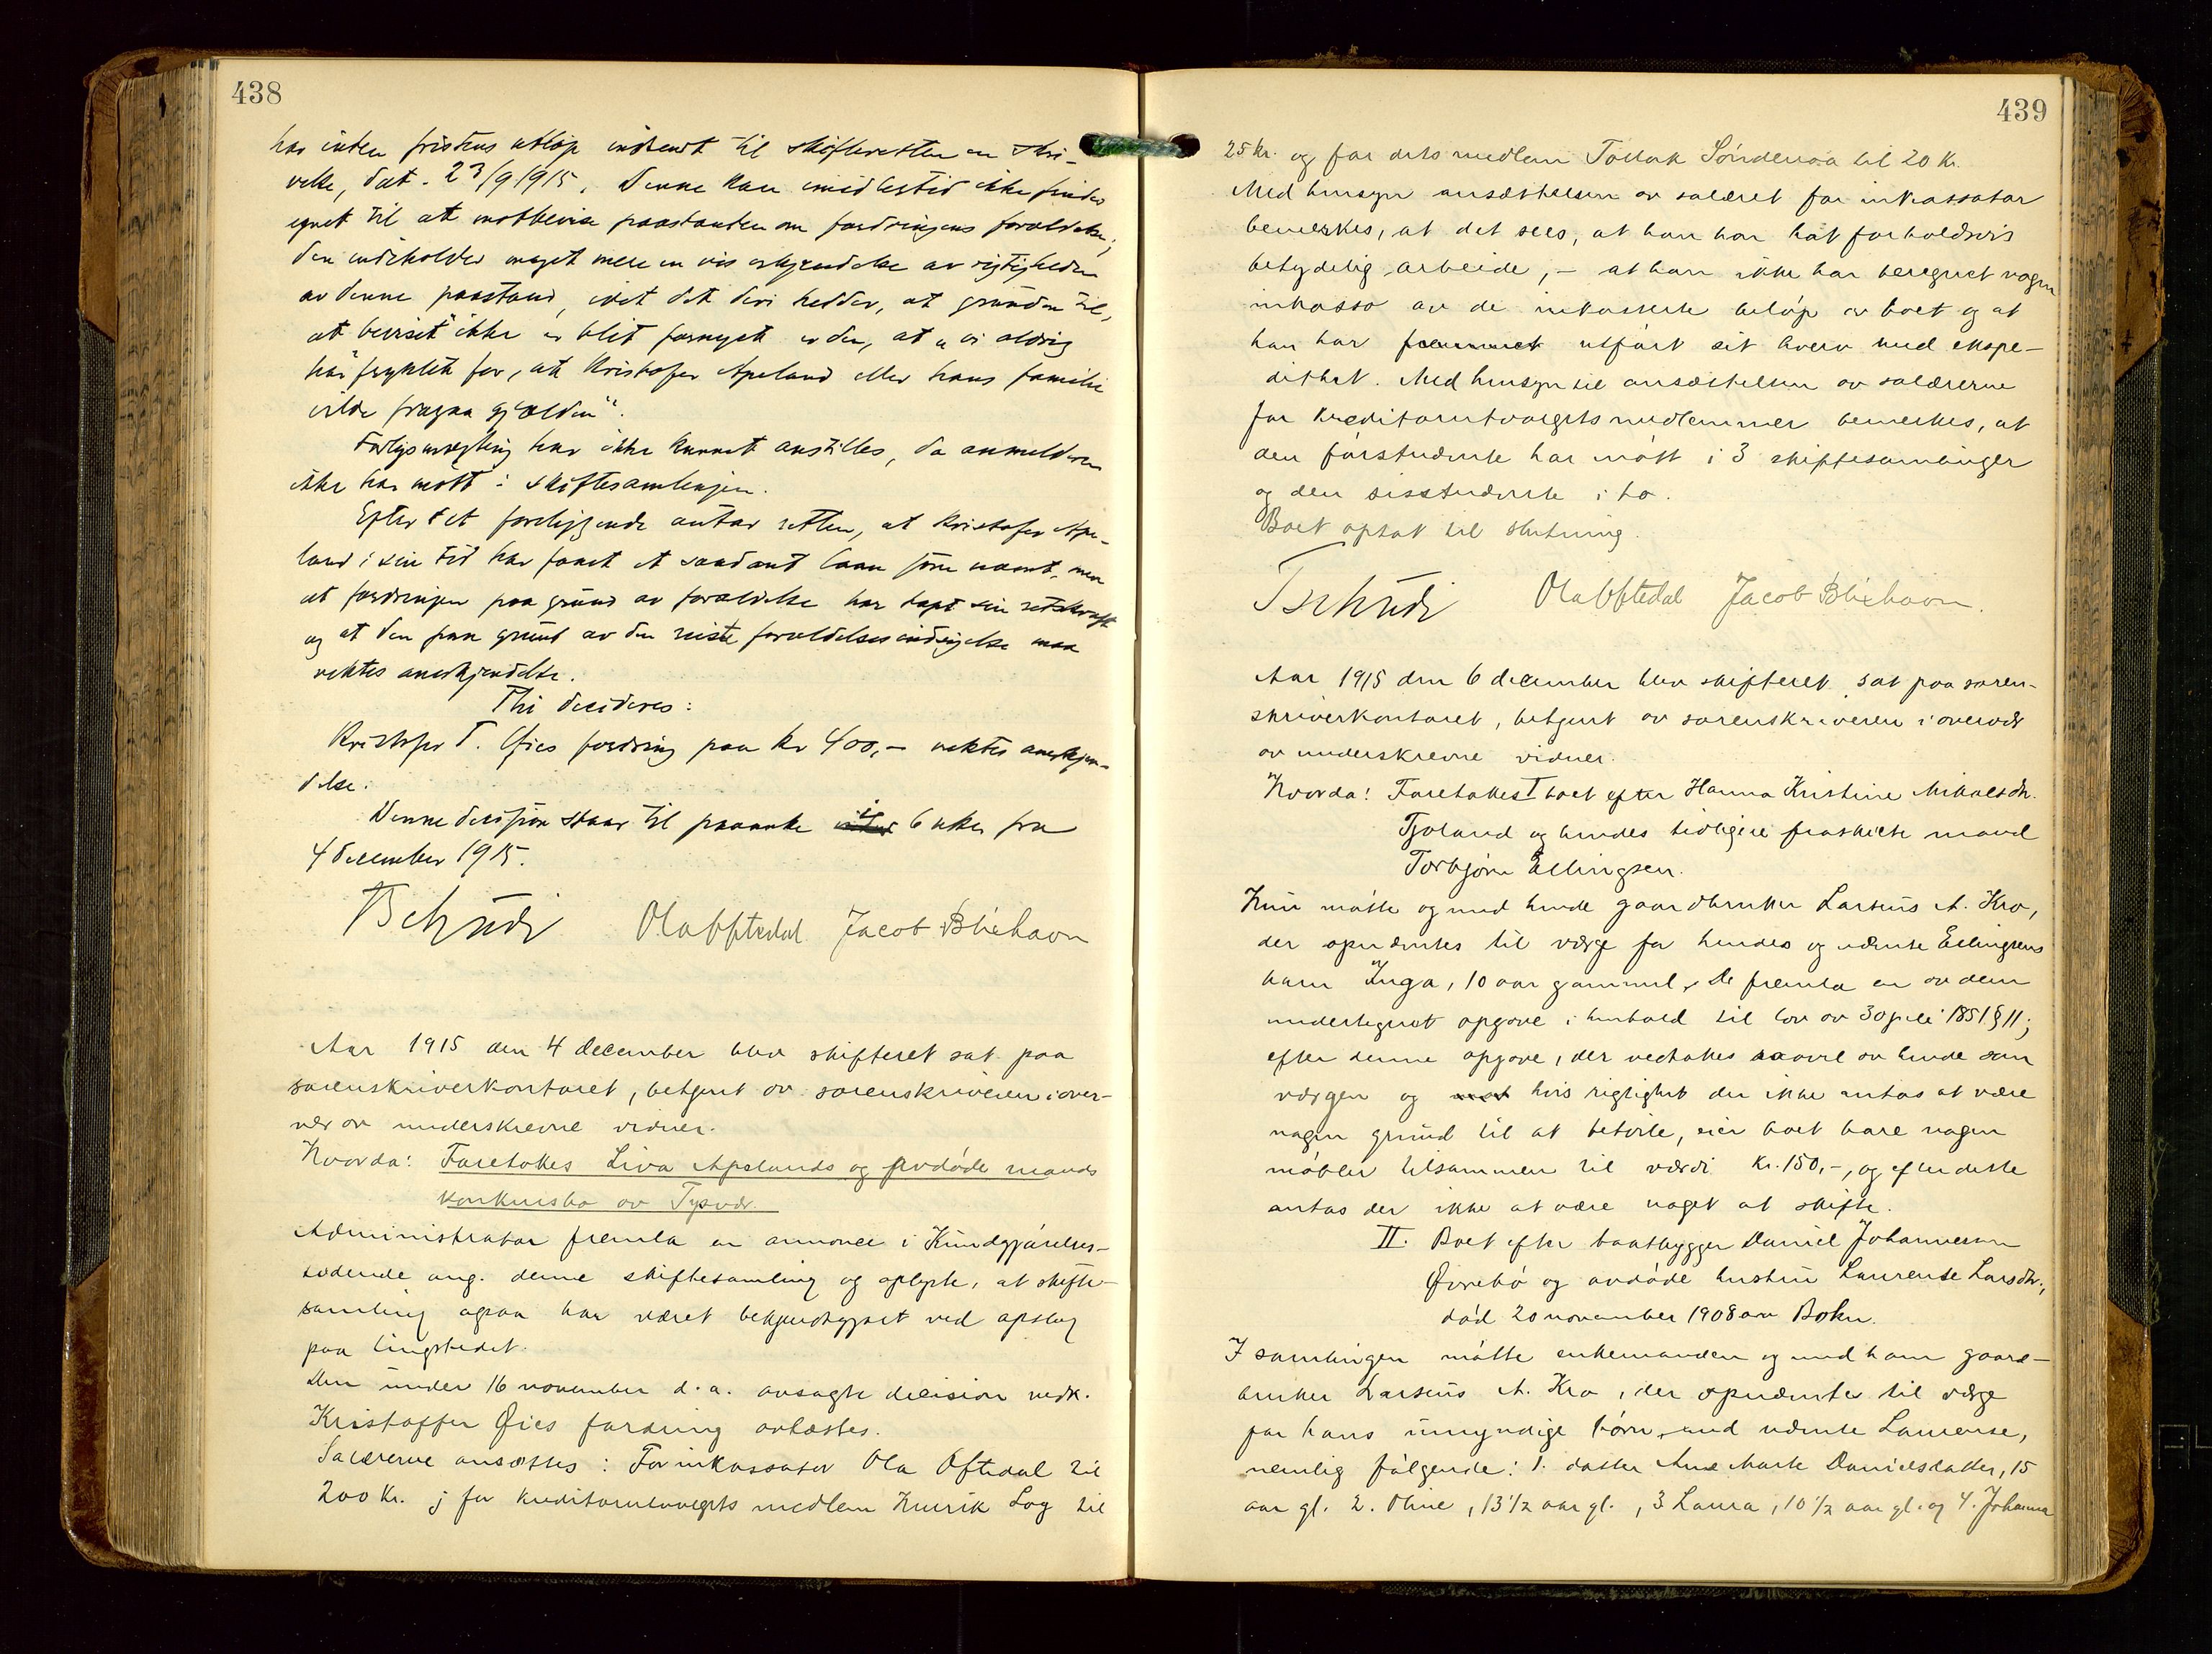 438
har inden fristens utløp indsendt til skifteretten en skri-
velse, dat. 23/9 1915. Denne kan imidlertid ikke findes
egnet til at motbevise paastanden om fordringens forældelse;
den indeholder meget mere en vis erkjendelse av rigtigheden
av denne paastand, idet det deri heder, at grunden til,
at beviset ikke er blit fornyet er den, at „vi aldrig
har fryktet for, at Kristofer Apeland eller hans familie
vilde fragaa gjælden".
Forligsmægling har ikke kunnet anstilles, da anmelderen
ikke har møtt i skiftesamlingen.
Efter det foreliggende antar retten, at Kristofer Ape-
land i sin tid har faaet et saadant laan som nævnt, men
at fordringen paa grund av forældelse har tapt sin retskraft
og at den paa grund av den reiste forældelsesindsigelse maa
nektes anerkjendelse.
Thi decideres:
Kristofer T. Øies fordring paa kr 400,- nektes anerkjen-
delse.
Denne decisjon staar til paaanke i 6 uker fra
4 december 1915.
Tschudi Ola Oftedal Jacob Blixhavn
Aar 1915 den 4 december blev skifteret sat paa
sorenskriverkontoret, betjent av sorenskriveren i over-
vær av underskrevne vidner.
Hvorda: Foretokes Liva Apelands og avdøde mands
konkursbo av Tysvær.
Administrator fremla en annonce i Kundgjørelses-
tidende ang. denne skiftesamling og oplyste, at skifte-
samling ogsaa har været bekjendtgjort ved opslag
paa tingstedet.
Den under 16 november d. a. avsagte decision vedk.
Kristoffer Øies fordring avlæstes.
Salærerne ansættes: For inkassator Ola Oftedal til
200 kr. ; for kreditorutvalgets medlem Henrik Log til
439
25 kr. og for dets medlem Tollak Søndenaa til 20 kr.
Med hensyn ansættelsen av salæret for inkassator
bemerkes, at det sees, at han har hat forholdsvis
betydelig arbeide, – at han ikke har beregnet nogen
inkasso av de inkasserte beløp av boet og at
han har utført sit hverv med ekspe-
dithet. Med hensyn til ansættelsen av salærerne
for Kreditorutvalgets medlemmer bemerkes, at
den førstnævnte har møtt i 3 skiftesamlinger
og den sisstnævnte i to.
Boet optat til slutning.
Tschudi Ola Oftedal Jacob Blixhavn.
Aar 1915 den 6 december blev skifteret sat paa soren-
skriverkontoret, betjent av sorenskriveren i overvær
av underskrevne vidner.
Hvorda: Foretokes I boet efter Hanna Kristine Mikalsdtr.
Tjoland og hendes tidligere fraskilte mand
Torbjørn Ellingsen.
Hun møtte og med hende gaardbruker Larsius A. Kro,
der opnævntes til værge for hendes og nævnte Ellingsens
barn Inga, 10 aar gammel. De fremla en av dem
undertegnet opgave i henhold til lov av 30 juli 1851 § 11;
efter denne opgave, der vedtokes saavel av hende som
værgen og hvis rigtighet der ikke antas at være
nogen grund til at betvile, eier boet bare nogen
møbler tilsammen til værdi kr. 150,-, og efter dette
antas der ikke at være noget at skifte.
II. Boet efter baatbygger Daniel Johannessen
Øvrebø og avdøde hustru Laurense Larsdtr.,
død 20 november 1908 av Bokn.
I samlingen møtte enkemanden og med ham gaard-
bruker Larsius A. Kro, der opnævntes til værge
for hans umyndige børn med nævnte Laurense,
nemlig følgende: 1. datter Ane Marte Danielsdatter, 15
aar gl. 2. Oline, 13 1/2 aar gl., 3 Laura, 10 1/2 aar gl. og 4. Johanna